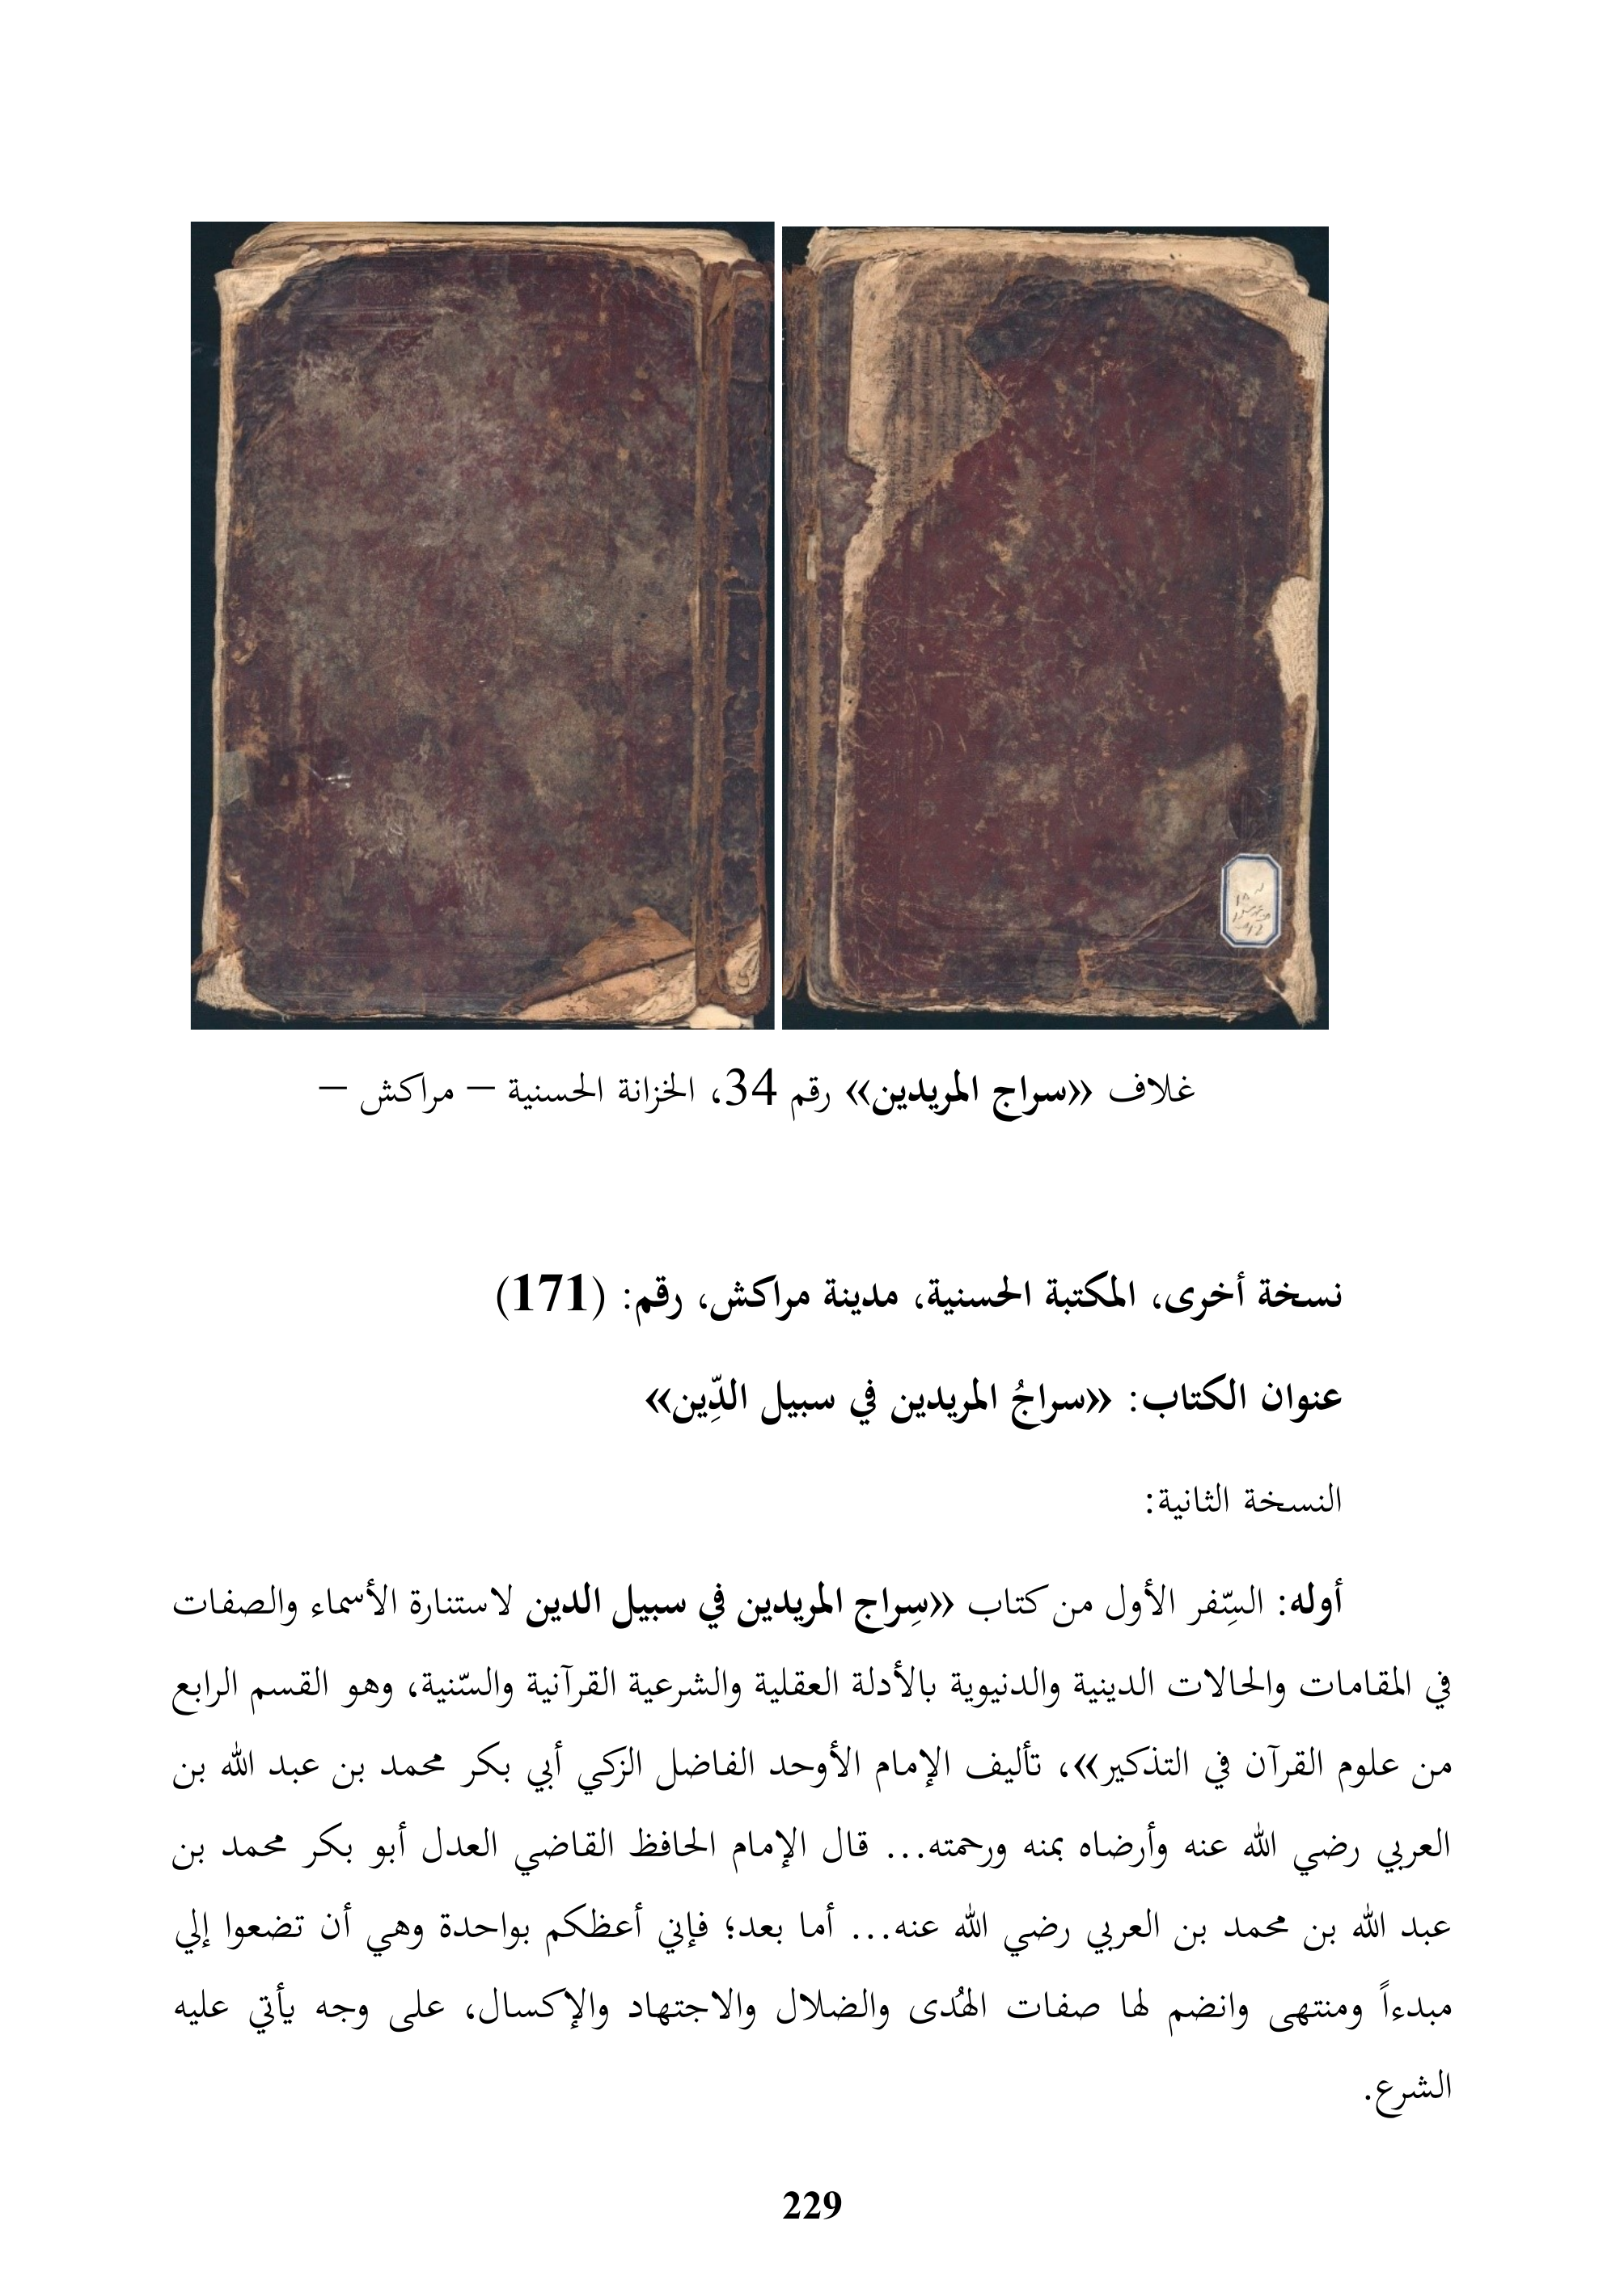 غلاف «سراج المريدين» رقم 34، الخزانة الحسنية – مراكش –
نسخة أخرى، المكتبة الحسنية، مدينة مراكش، رقم: (171)
عنوان الكتاب: «سراجُ المريدين في سبيل الدِّين»
النسخة الثانية:
أوله: السِّفر الأول من كتاب «سِراج المريدين في سبيل الدين لاستنارة الأسماء والصفات
في المقامات والحالات الدينية والدنيوية بالأدلة العقلية والشرعية القرآنية والسّنية، وهو القسم الرابع
من علوم القرآن في التذكير»، تأليف الإمام الأوحد الفاضل الزكي أبي بكر محمد بن عبد الله بن
العربي رضي الله عنه وأرضاه بمنه ورحمته... قال الإمام الحافظ القاضي العدل أبو بكر محمد بن
عبد الله بن محمد بن العربي رضي الله عنه... أما بعد؛ فإني أعظكم بواحدة وهي أن تضعوا إلي
مبدءاً ومنتهى وانضم لها صفات الهُدى والضلال والاجتهاد والإكسال، على وجه يأتي عليه
الشرع.
229